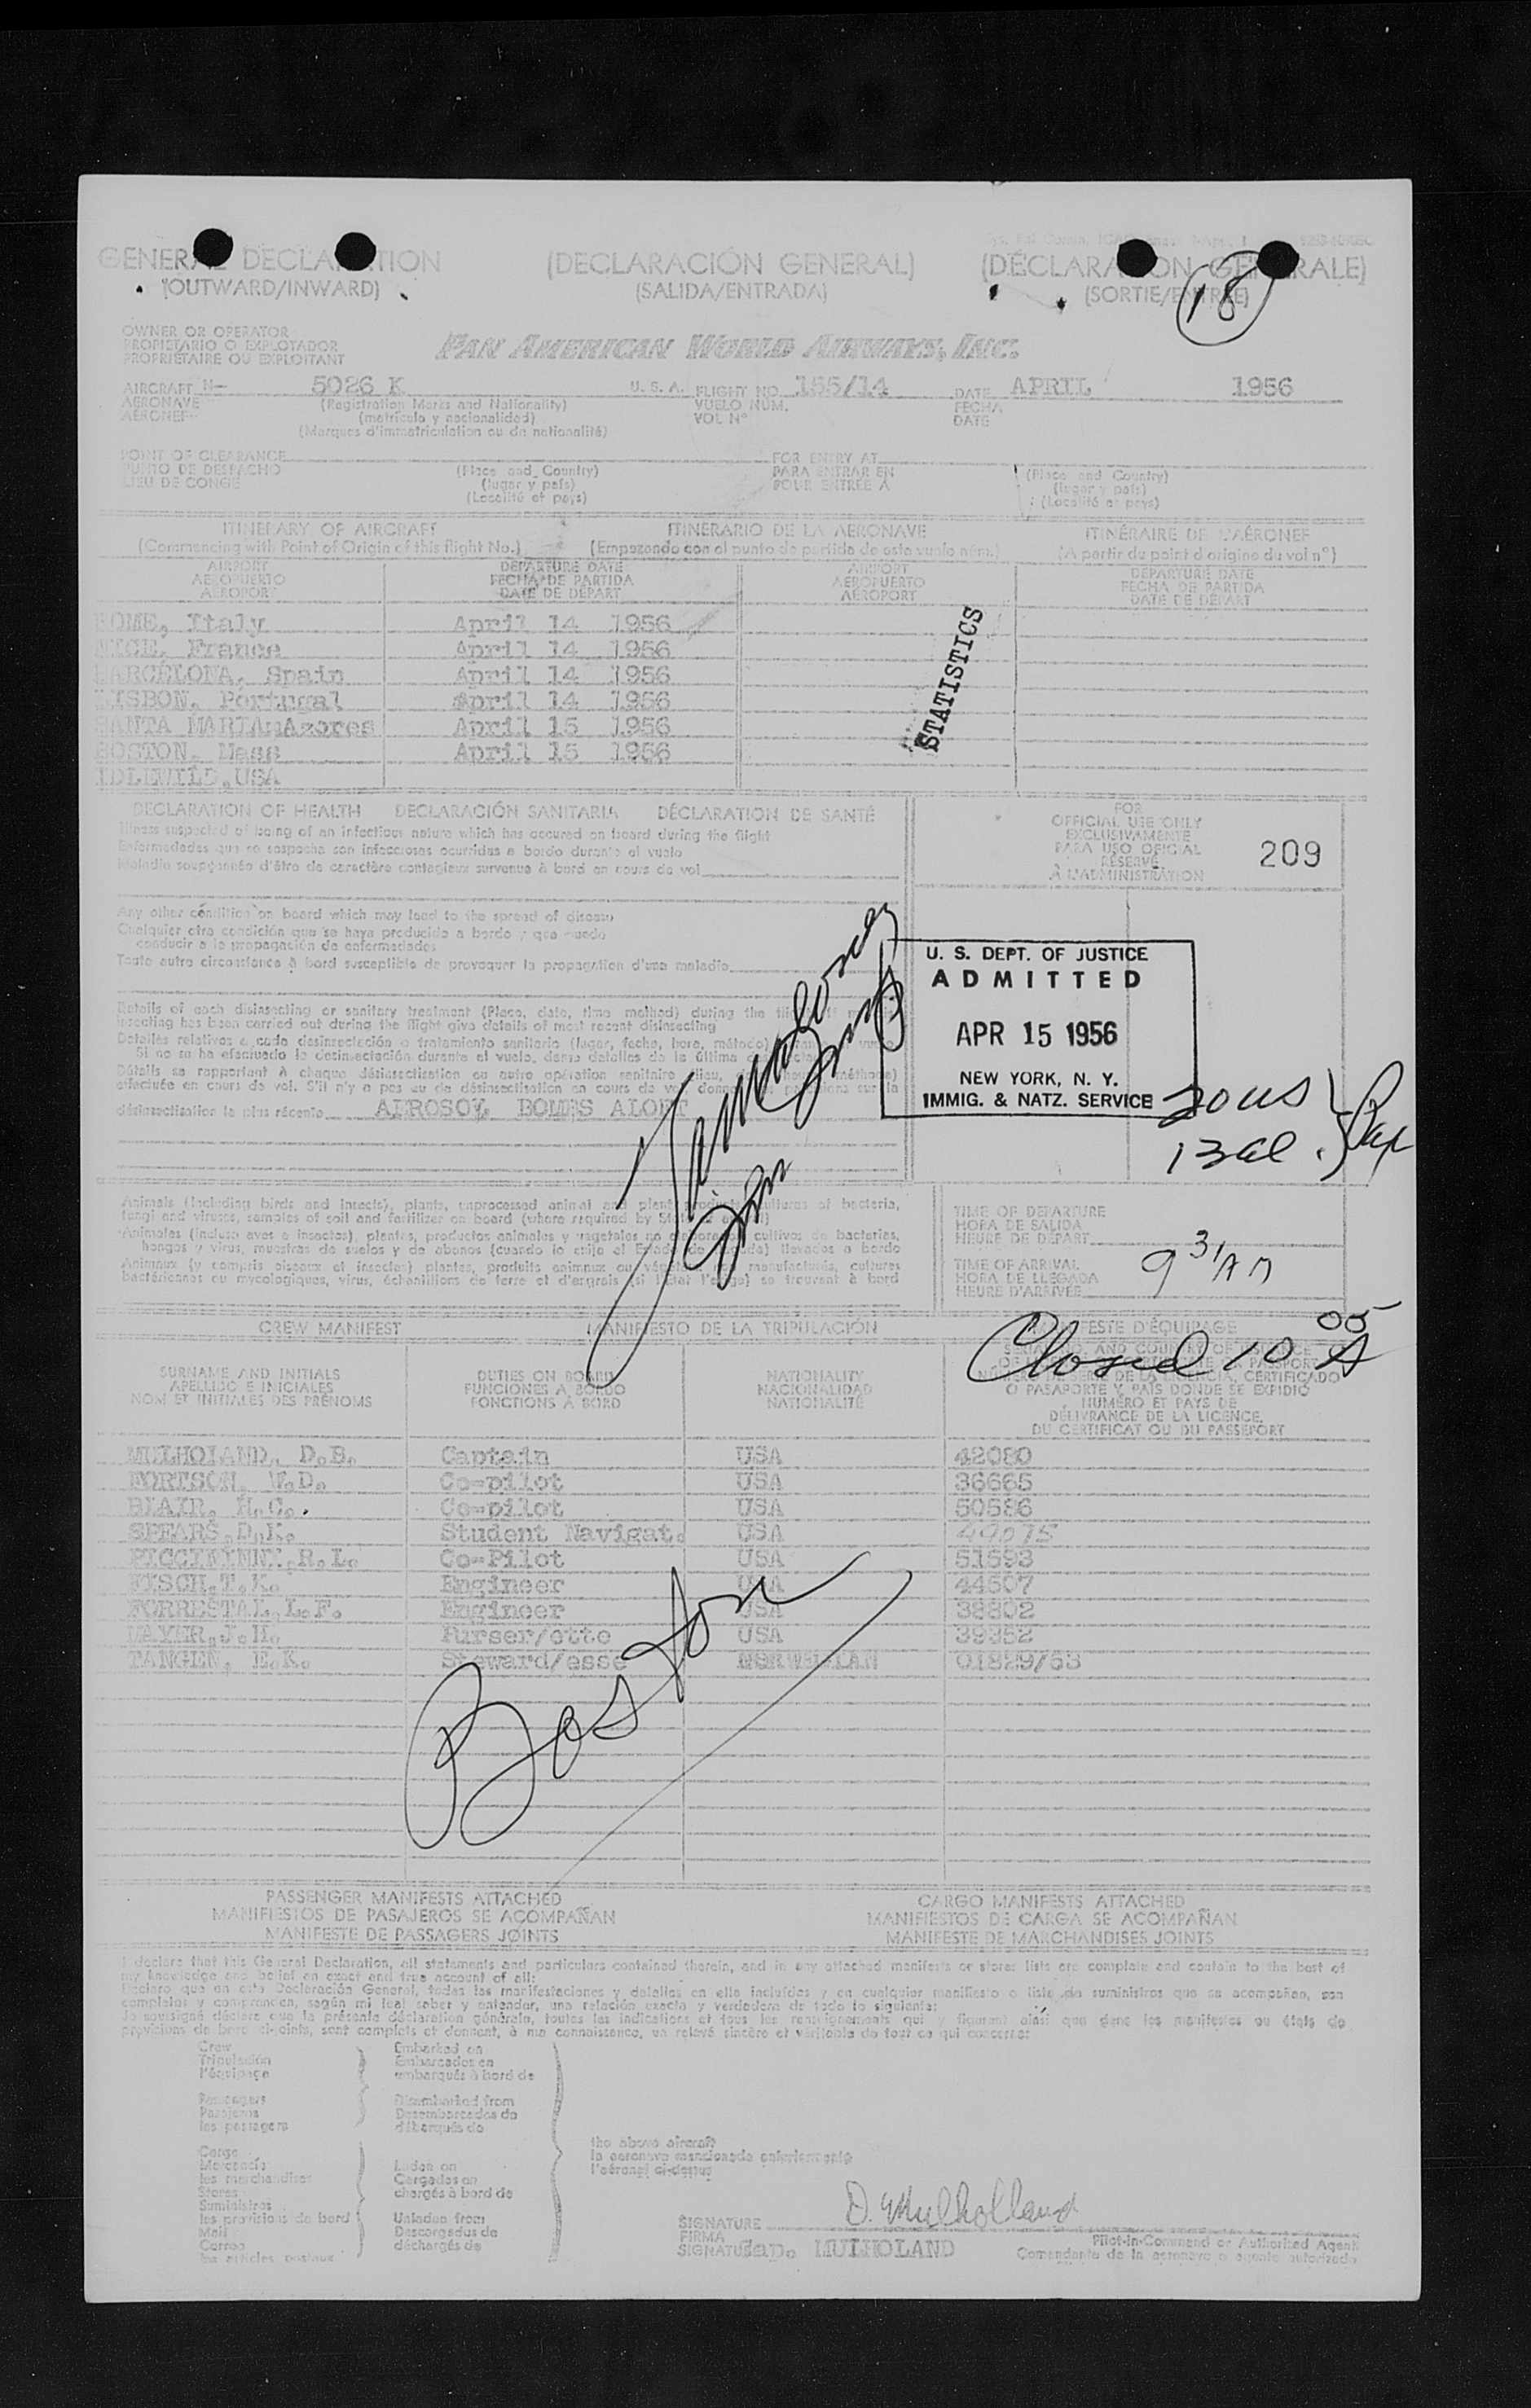 GENERAL DECLARATION (DECLARACIÓN GENERAL) (DÉCLARATION GENERALE)
(OUTWARD/INWARD) (SALIDA/ENTRADA) (SORTIE/ENTRÉE)
18
OWNER OR OPERATOR
PROPIETARIO O EXPLOTADOR
PROPRIÉTAIRE OU EXPLOITANT
PAN AMERICAN WORLD AIRWAYS, INC.
AIRCRAFT N- 5026 K U. S. A. FLIGHT NO. 155/14 DATE APRIL 1956
AERONAVE (Registration Marks and Nationality) VUELO NÚM. FECHA
AÉRONEF (matrícula y nacionalidad) VOL N° DATE
(Marques d'immatriculation ou de nationalité)
POINT OF CLEARANCE FOR ENTRY AT
PUNTO DE DESPACHO (Place and Country) PARA ENTRAR EN (Place and Country)
LIEU DE CONGÉ (lugar y país) POUR ENTRÉE À (lugar y país)
(Localité et pays) (Localité et pays)
ITINERARY OF AIRCRAFT ITINERARIO DE LA AERONAVE ITINÉRAIRE DE L'AÉRONEF
(Commencing with Point of Origin of this flight No.) (Empezando con el punto de partida de este vuelo núm.) (A partir du point d'origine du vol n°)
AIRPORT DEPARTURE DATE AIRPORT DEPARTURE DATE
AEROPUERTO FECHA DE PARTIDA AEROPUERTO FECHA DE PARTIDA
AÉROPORT DATE DE DÉPART AÉROPORT DATE DE DÉPART
ROME, Italy April 14 1956
NICE, France April 14 1956
BARCELONA, Spain April 14 1956
LISBON, Portugal April 14 1956
SANTA MARIA, Azores April 15 1956
BOSTON, Mass April 15 1956
IDLEWILD, USA
STATISTICS
DECLARATION OF HEALTH DECLARACIÓN SANITARIA DÉCLARATION DE SANTÉ
Illness suspected of being of an infectious nature which has occured on board during the flight
Enfermedades que se sospecha son infecciosas ocurridas a bordo durante el vuelo
Maladie soupçonnée d'être de caractère contagieux survenue à bord en cours de vol
FOR
OFFICIAL USE ONLY
EXCLUSIVAMENTE
PARA USO OFICIAL
RÉSERVÉ
À L'ADMINISTRATION
209
Any other condition on board which may lead to the spread of disease
Cualquier otra condición que se haya producido a bordo y que pueda
conducir a la propagación de enfermedades
Toute autre circonstance à bord susceptible de provoquer la propagation d'une maladie
U. S. DEPT. OF JUSTICE
ADMITTED
APR 15 1956
NEW YORK, N. Y.
IMMIG. & NATZ. SERVICE
Details of each disinsecting or sanitary treatment (Place, date, time method) during the
insecting has been carried out during the flight give details of most recent disinsecting
Detalles relativos a cada desinsectación o tratamiento sanitario (lugar, fecha, hora, método)
Si no se ha efectuado la desinsectación durante el vuelo, dense detalles de la última
Détails se rapportant à chaque désinsectisation ou autre opération sanitaire (lieu, méthode)
effectuée en cours de vol. S'il n'y a pas eu de désinsectisation en cours de vol sur la
désinsectisation la plus récente AEROSOL BOMBS ALOFT
20 US
13 al. } Pax
Animals (including birds and insects), plants, unprocessed animal and plant products, cultures of bacteria,
fungi and viruses, samples of soil and fertilizer on board (where required by
Animales (incluso aves e insectos), plantas, productos animales y vegetales no cultivos de bacterias,
hongos y virus, muestras de suelos y de abonos (cuando lo exija el Estado llevados a bordo
Animaux (y compris oiseaux et insectes) plantes, produits animaux ou manufacturés, cultures
bactériennes ou mycologiques, virus, échantillons de terre et d'engrais se trouvent à bord
TIME OF DEPARTURE
HORA DE SALIDA
HEURE DE DÉPART
TIME OF ARRIVAL
HORA DE LLEGADA 9 31 AM
HEURE D'ARRIVÉE
Closed 10 05 A
CREW MANIFEST MANIFIESTO DE LA TRIPULACIÓN MANIFESTE D'ÉQUIPAGE
SURNAME AND INITIALS DUTIES ON BOARD NATIONALITY
APELLIDO E INICIALES FUNCIONES A BORDO NACIONALIDAD
NOM ET INITIALES DES PRÉNOMS FONCTIONS À BORD NATIONALITÉ
O PASAPORTE Y PAÍS DONDE SE EXPIDIÓ
NUMÉRO ET PAYS DE
DÉLIVRANCE DE LA LICENCE,
DU CERTIFICAT OU DU PASSEPORT
MULHOLAND, D.B. Captain USA 42080
FORTSON, W.D. Co-pilot USA 36665
BLAIR, H.C. Co-pilot USA 50586
SPEARS, D.K. Student Navigat. USA 49075
R.L. Co-Pilot USA 51593
FISCH, T.K. Engineer USA 44507
FORRESTAL, L.F. Engineer USA 38802
MAYER, J.H. Purser/ette USA 39352
TANGEN, E.K. Steward/esse NORWEGIAN 01829/53
Boston
PASSENGER MANIFESTS ATTACHED CARGO MANIFESTS ATTACHED
MANIFIESTOS DE PASAJEROS SE ACOMPAÑAN MANIFIESTOS DE CARGA SE ACOMPAÑAN
MANIFESTE DE PASSAGERS JOINTS MANIFESTE DE MARCHANDISES JOINTS
I declare that this General Declaration, all statements and particulars contained therein, and in any attached manifests or stores lists are complete and contain to the best of
my knowledge and belief an exact and true account of all:
Declaro que en esta Declaración General, todas las manifestaciones y detalles en ella incluidos y en cualquier manifiesto o lista de suministros que se acompañan, son
completos y comprenden, según mi leal saber y entender, una relación exacta y verdadera de todo lo siguiente:
Je soussigné déclare que la présente déclaration générale, toutes les indications et tous les renseignements qui y figurent ainsi que dans les manifestes ou états de
provisions de bord ci-joints, sont complets et donnent, à ma connaissance, un relevé sincère et véritable de tout ce qui concerne:
Crew Embarked on
Tripulación Embarcados en
l'équipage embarqués à bord de
Passengers Disembarked from
Pasajeros Desembarcados de
les passagers débarqués de
the above aircraft
la aeronave mencionada anteriormente
l'aéronef ci-dessus
Cargo
Mercancía Laden on
les marchandises Cargados en
Stores chargés à bord de
Suministros
les provisions de bord Unladen from
Mail Descargados de
Correo déchargés de
les articles postaux
SIGNATURE D. Mulholland
FIRMA Pilot-in-Command or Authorized Agent
SIGNATURE Cap. MULHOLAND Comandante de la aeronave o agente autorizado